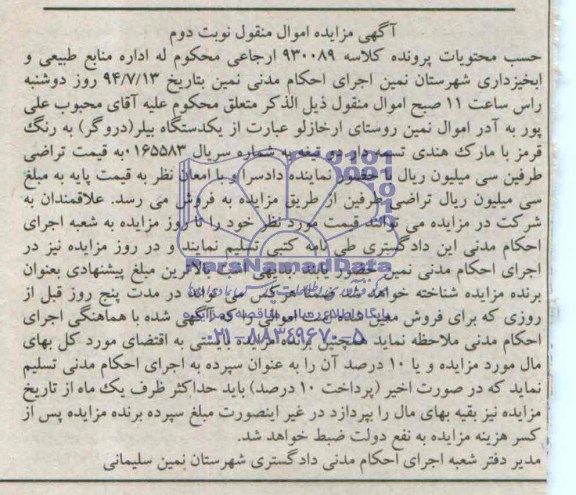 آگهی مزایده اموال منقول نوبت دوم
حسب محتویات پرونده کلاسه ۹۳۰۰۸۹ ارجاعی محکوم له اداره منابع طبیعی و
ابخیزداری شهرستان نمین اجرای احکام مدنی نمین بتاریخ ۹۴/۷/۱۳ روز دوشنبه
راس ساعت ۱۱ صبح اموال منقول ذیل الذکر متعلق محکوم علیه آقای محبوب علی
پور به آدر اموال نمین روستای ارخازلو عبارت از یکدستگاه بیلر(دروگر) به رنگ
قرمز با مارک هندی تسمه دار دو تیغه به شماره سریال ۰۱۶۵۵۸۳ به قیمت تراضی
طرفین سی میلیون ریال با حضور نماینده دادسرا و با امعان نظر به قیمت پایه به مبلغ
سی میلیون ریال تراضی طرفین از طریق مزایده به فروش می رسد. علاقمندان به
شرکت در مزایده می توانند قیمت مورد نظر خود را تا روز مزایده به شعبه اجرای
احکام مدنی این دادگستری طی نامه کتبی تسلیم نمایند و در روز مزایده نیز در
اجرای احکام مدنی نمین حضور یابند. بدیهی است بالاترین مبلغ پیشنهادی بعنوان
برنده مزایده شناخته خواهد شد ضمنا هر کس می تواند در مدت پنج روز قبل از
روزی که برای فروش معین شده است اموالی را که آگهی شده با هماهنگی اجرای
احکام مدنی ملاحظه نماید همچنین برنده مزایده بایستی به اقتضای مورد کل بهای
مال مورد مزایده و یا ۱۰ درصد آن را به عنوان سپرده به اجرای احکام مدنی تسلیم
نماید که در صورت اخیر (پرداخت ۱۰ درصد) باید حداکثر ظرف یک ماه از تاریخ
مزایده نیز بقیه بهای مال را بپردازد در غیر اینصورت مبلغ سپرده برنده مزایده پس از
کسر هزینه مزایده به نفع دولت ضبط خواهد شد.
مدیر دفتر شعبه اجرای احکام مدنی دادگستری شهرستان نمین سلیمانی
ParsNamadData
۰۲۱-۸۸۳۴۹۶۷۰-۵